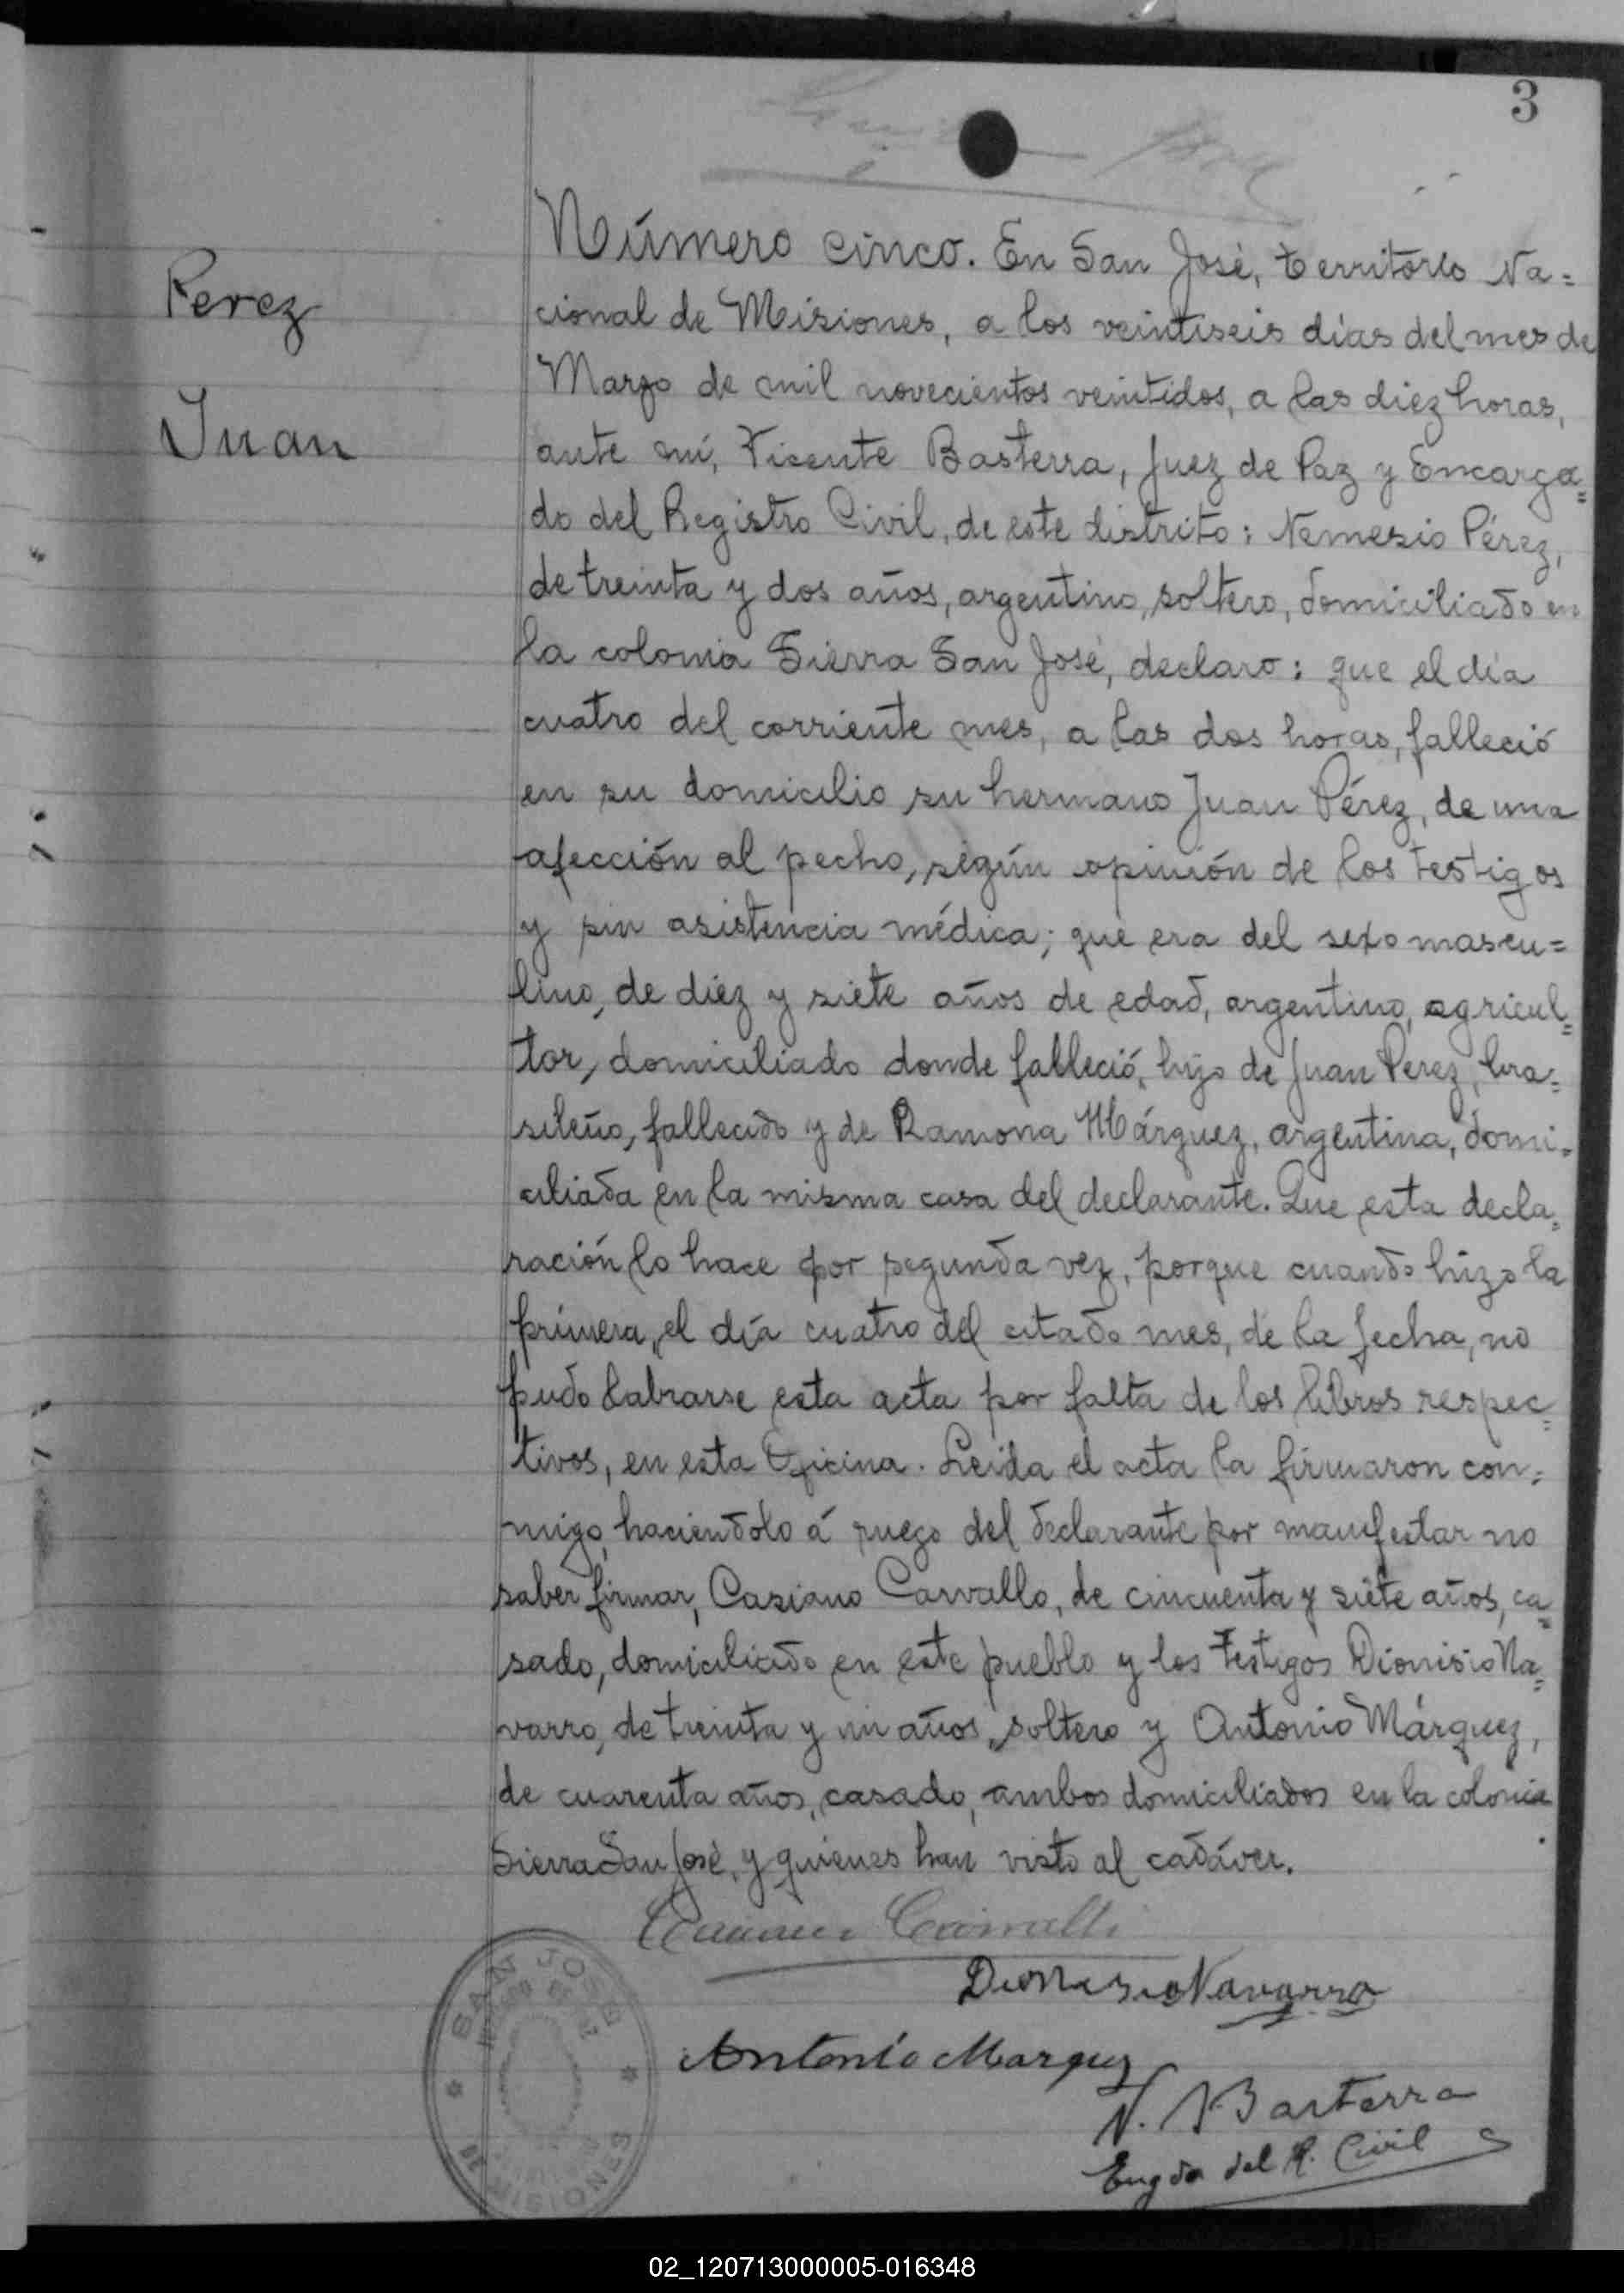 3
Perez
Juan
Número cinco. En San José, territorio Na=
cional de Misiones, a los veintiseis días del mes de
Marzo de mil novecientos veintidos, a las diez horas,
ante mí, Vicente Basterra, Juez de Paz y Encarga=
do del Registro Civil, de este distrito: Nemesio Pérez,
de treinta y dos años, argentino, soltero, domiciliado en
la colonia Sierra San José, declaro: que el día
cuatro del corriente mes, a las dos horas, falleció
en su domicilio su hermano Juan Pérez, de una
afección al pecho, según opinión de los testigos
y sin asistencia médica; que era del sexo mascu=
lino, de diez y siete años de edad, argentino, agricul=
tor, domiciliado donde falleció, hijo de Juan Perez, bra=
sileño, fallecido y de Ramona Márquez, argentina, domi=
ciliada en la misma casa del declarante. Que esta decla=
ración lo hace por segunda vez, porque cuando hizo la
primera, el día cuatro del citado mes, de la fecha, no
pudo labrarse esta acta por falta de los libros respec=
tivos, en esta Oficina. Leida el acta la firmaron con=
migo, haciendolo á ruego del declarante por manifestar no
saber firmar, Casiano Carvallo, de cincuenta y siete años, ca=
sado, domiciliado en este pueblo y los testigos Dionisio Na=
varro, de treinta y un años, soltero y Antonio Márquez,
de cuarenta años, casado, ambos domiciliados en la colonia
Sierra San José, y quienes han visto al cadáver.
Dionisio Navarro
Antonio Marquez
V. Basterra
Engdo del R. Civil
SAN JOSE
MISIONES
02_120713000005-016348